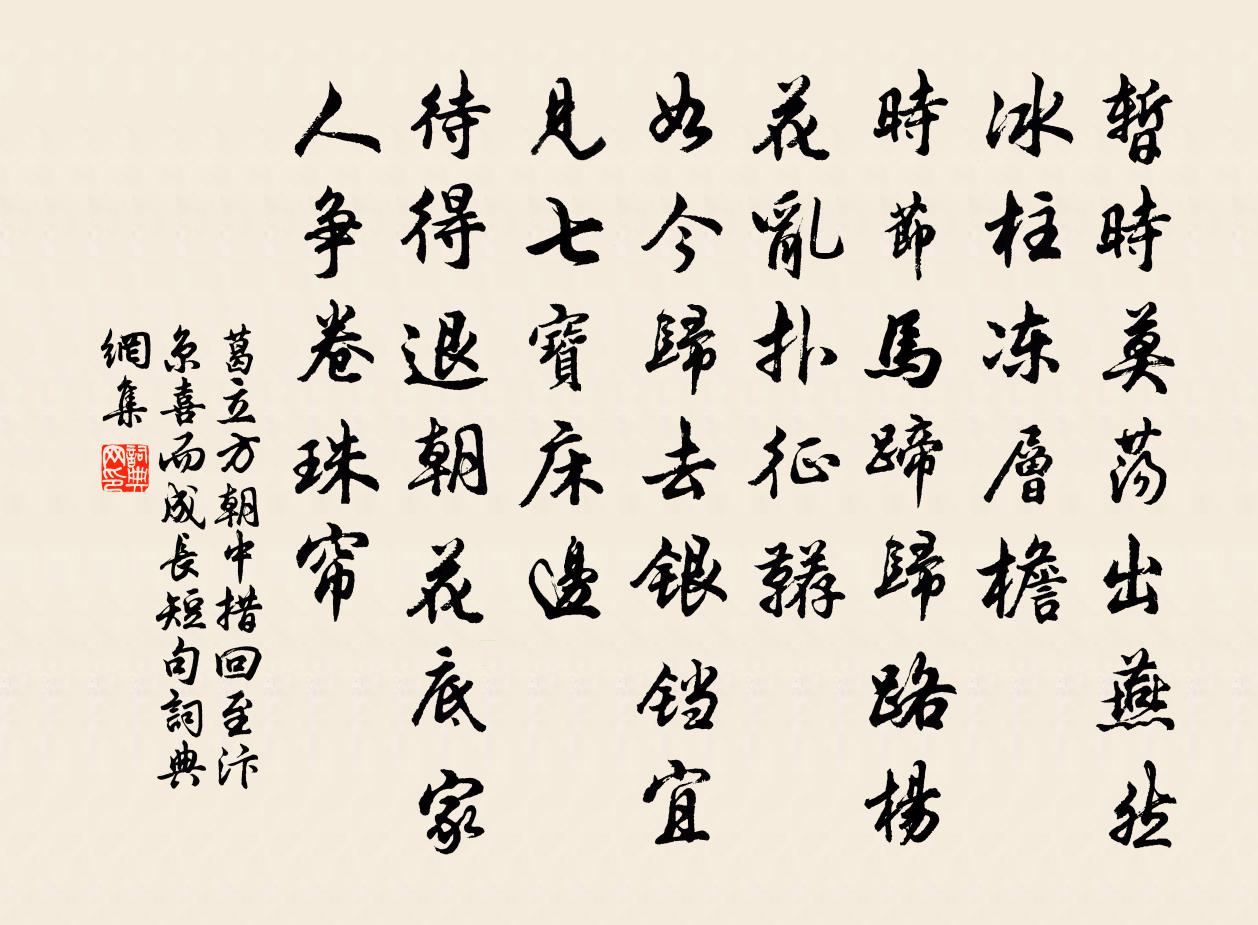 暫時莫蕩出燕然
冰柱凍層檐
時節馬蹄歸路楊
花亂扑征韉
如今歸去銀铛宜
見七寶床邊
待得退朝花底家
人爭卷珠帘
葛立方朝中措回至汴
京喜而成長短句詞典
網集
詞典
网印